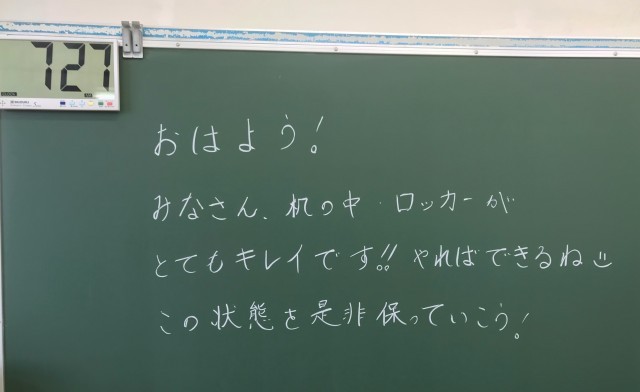 727
おはよう!
みなさん、机の中・ロッカーが
とてもキレイです!! やればできるね
この状態を是非保っていこう!